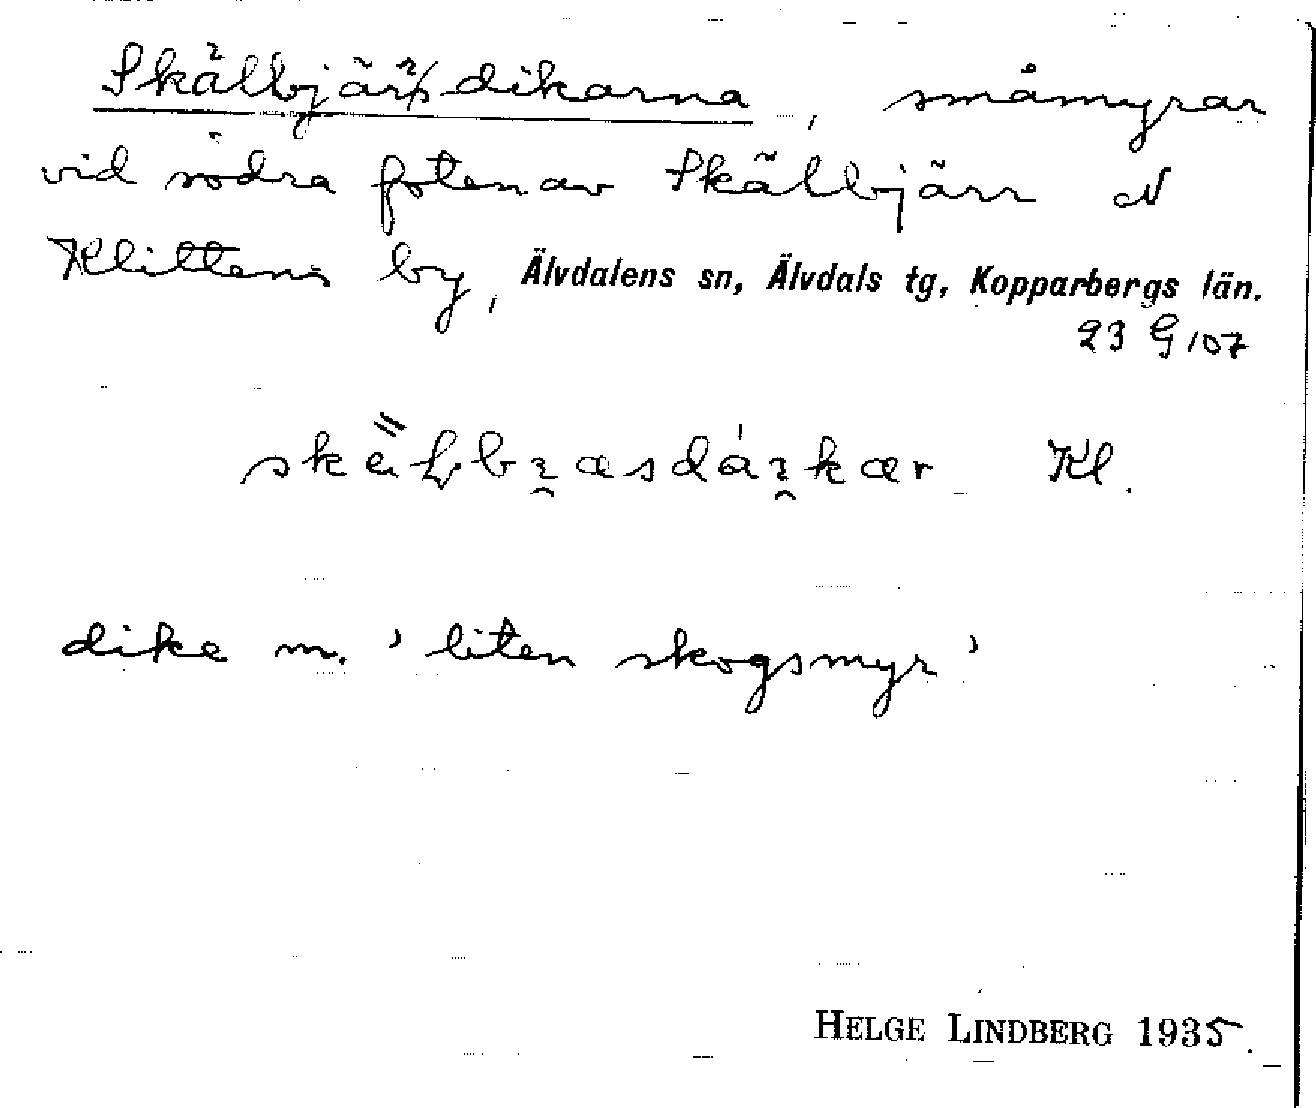 Skålbjärrdikarna, småmyrar
vid södra foten av Skålbjärr N
Klittens by, Älvdalens sn, Älvdals tg, Kopparbergs län.
23 G 107
Kl.
dike m. ' liten skogsmyr '
HELGE LINDBERG 1935.